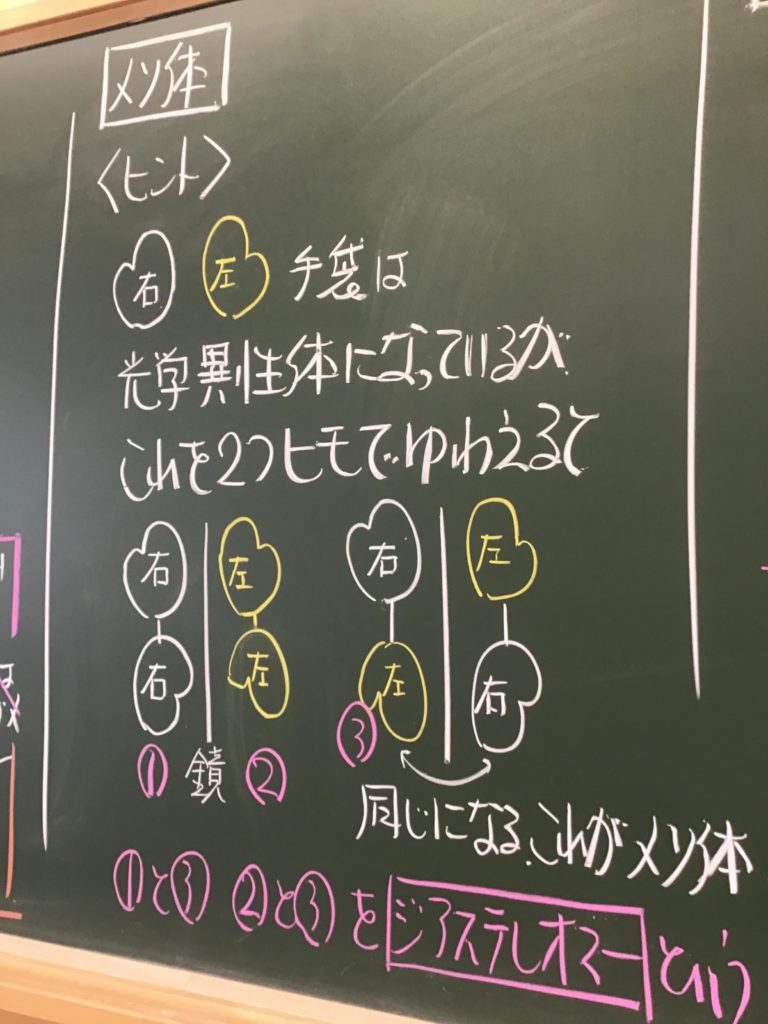 メソ体
〈ヒント〉
右 左 手袋は
光学異性体になっているが
これを2つヒモでゆわえると
右 左 右 左
右 左 左 右
① 鏡 ② ③
同じになる。これがメソ体
①と③ ②と③ を ジアステレオマー という